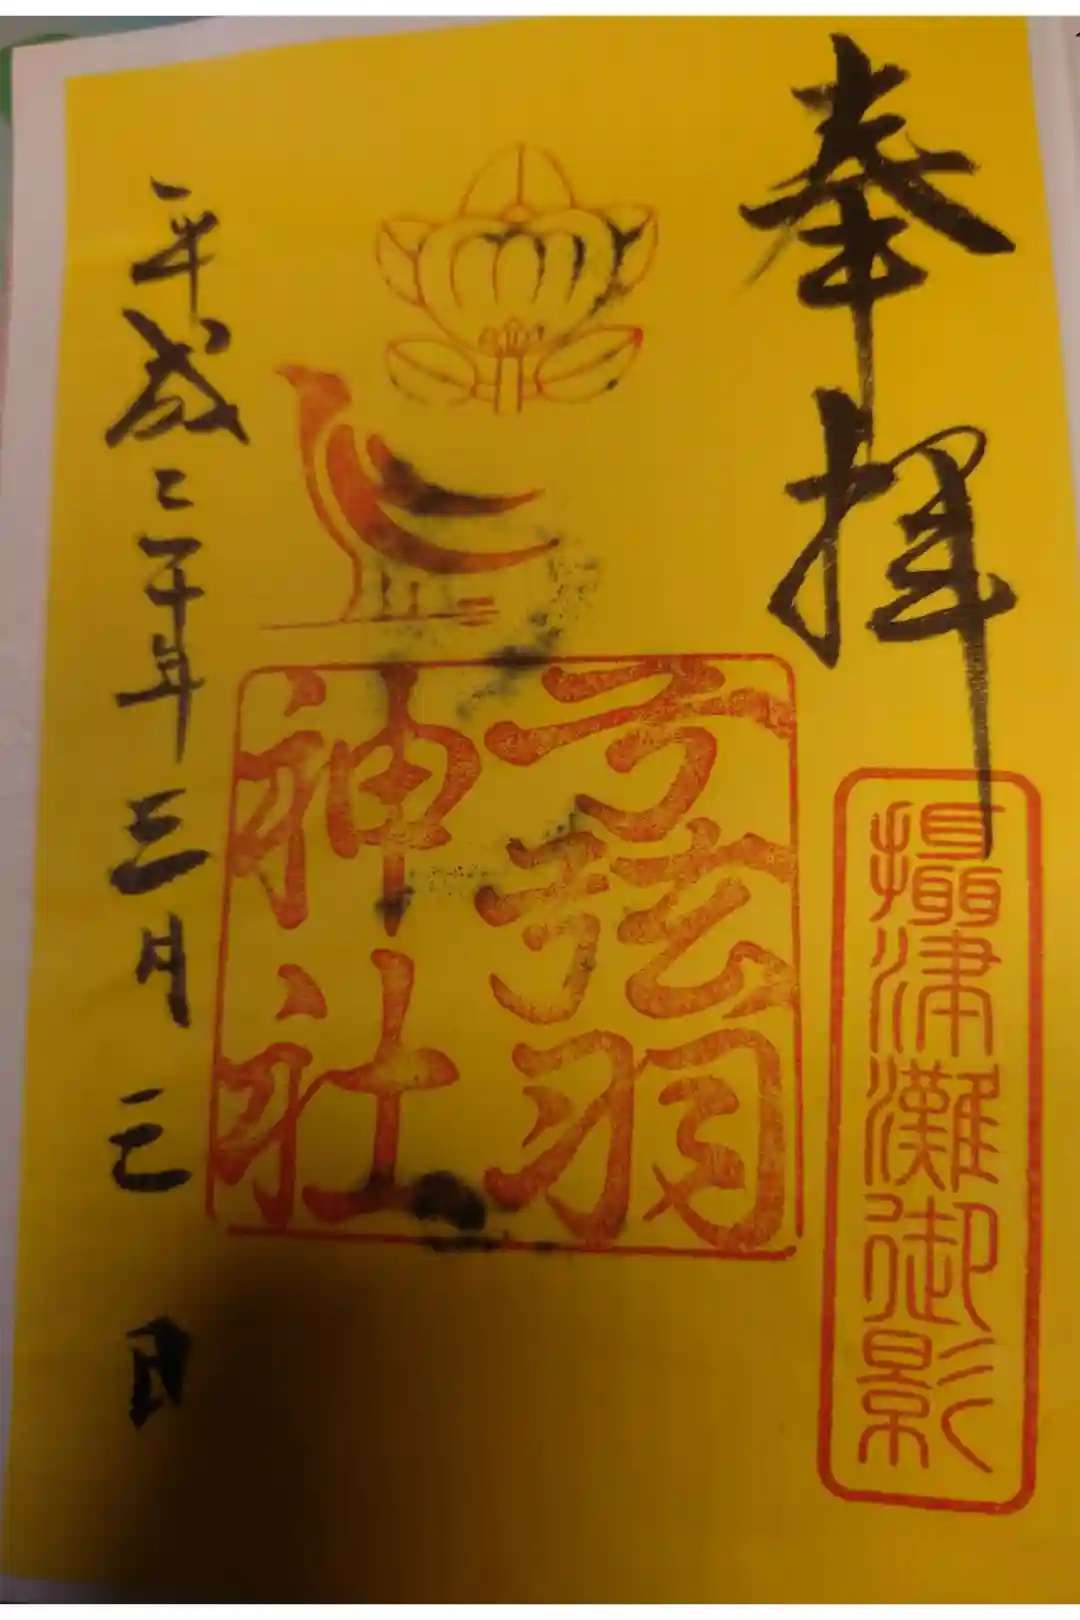 奉拝
攝津灘御影
弓弦羽
神社
平成三十年三月三日